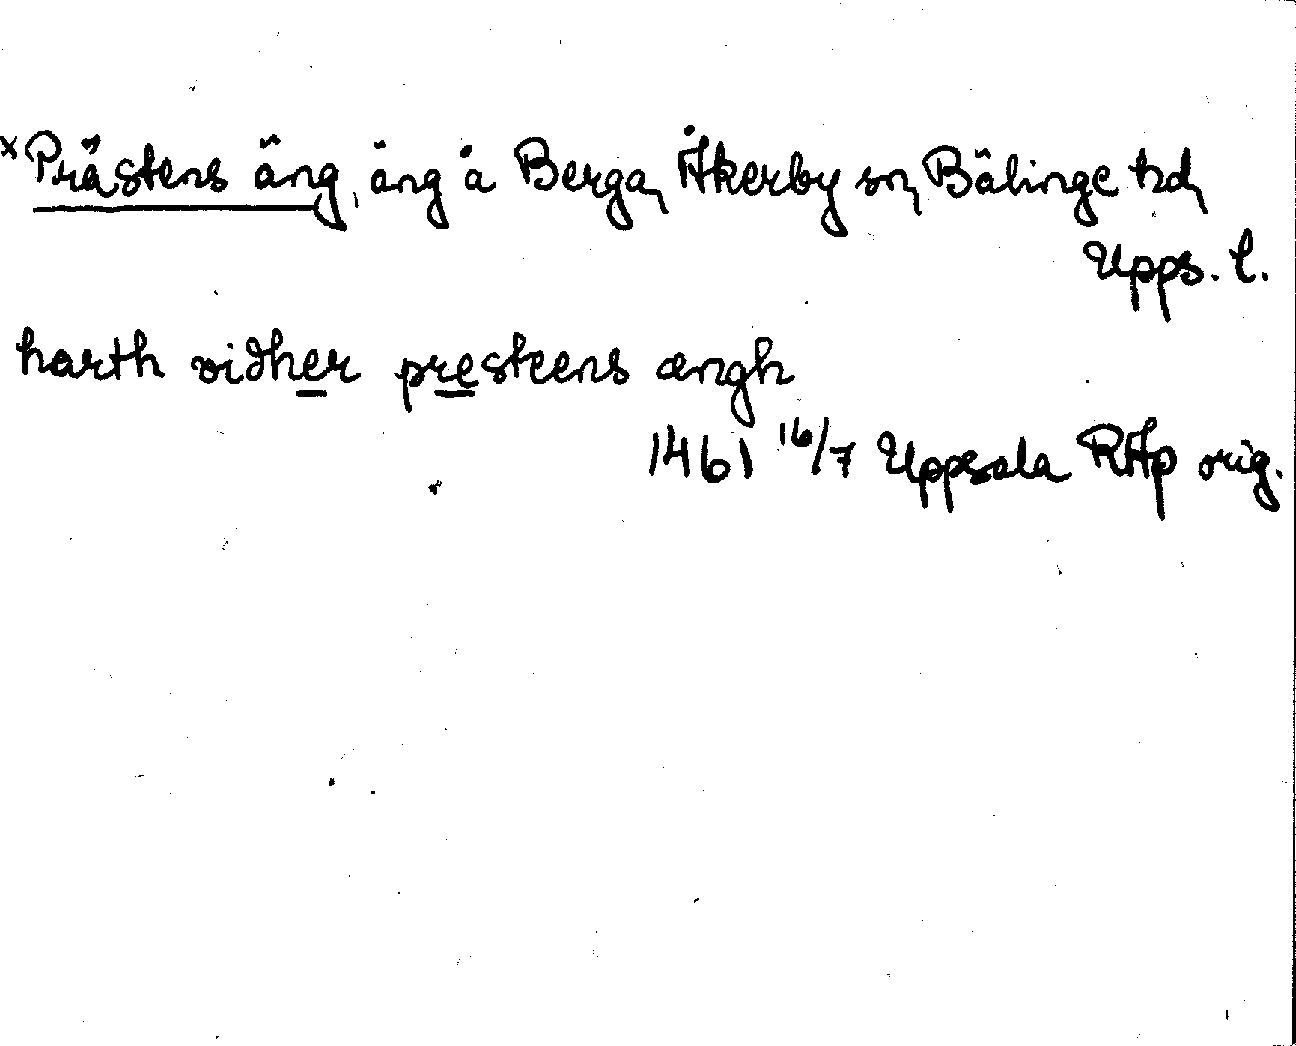 ×Prästens äng, äng å Berga, Åkerby sn, Bälinge hd,
Upps. l.
harth vidher presteens ængh
1461 16/7 Uppsala RAp orig.